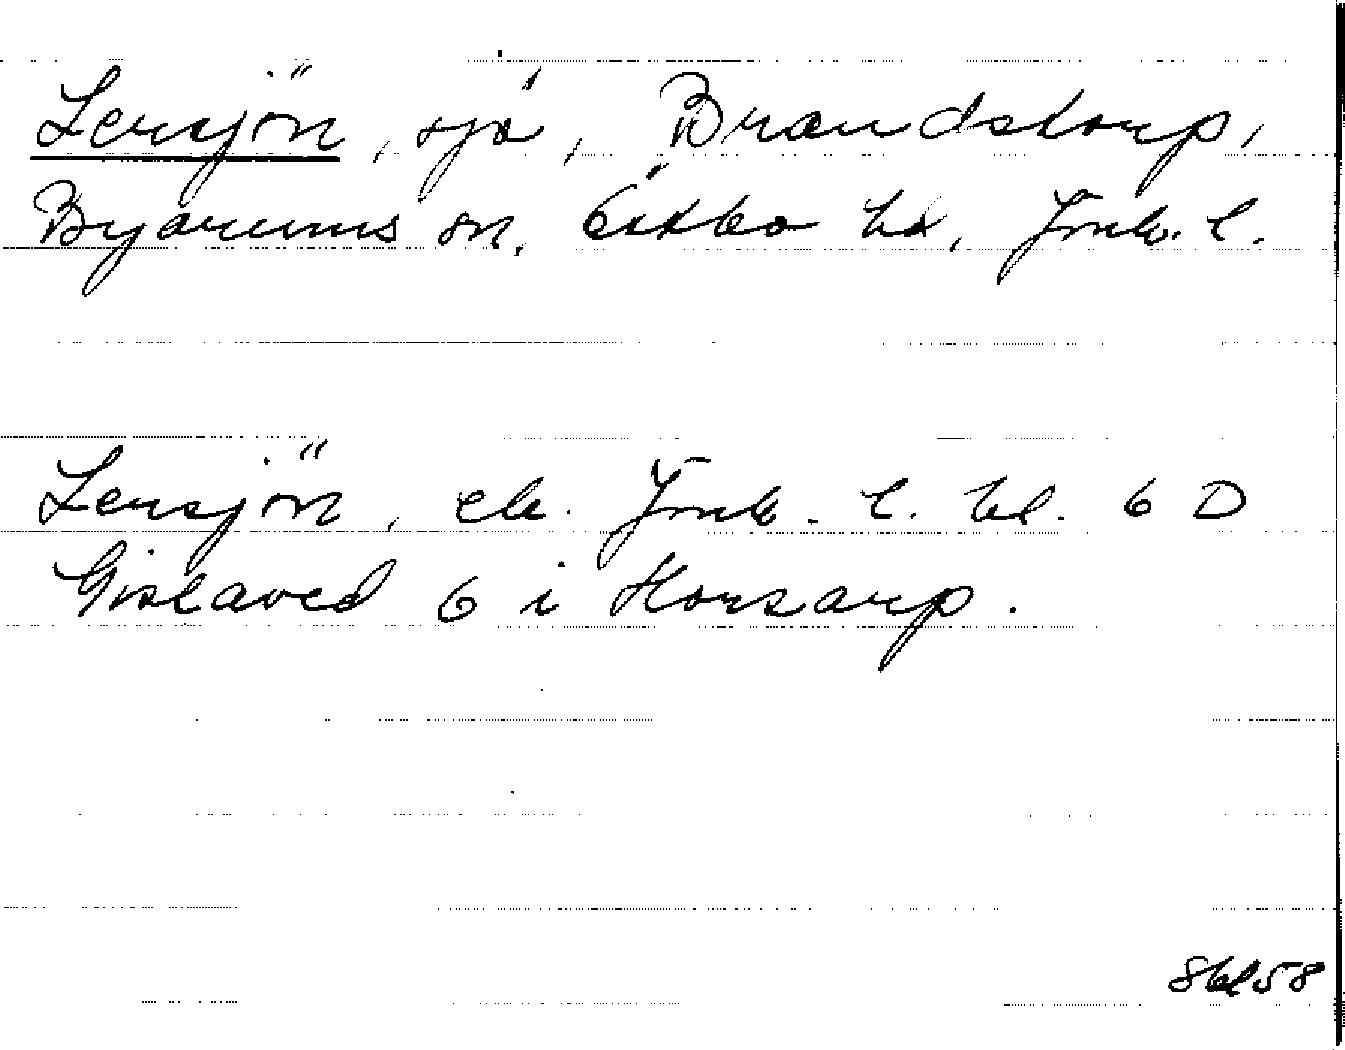 Lersjön, sjö, Brandstorp,
Byarums sn, Östbo hd, Jönk. l.
Lersjön, ek. Jönk. l. bl. 6 D
Gislaved 6 i Horsarp.